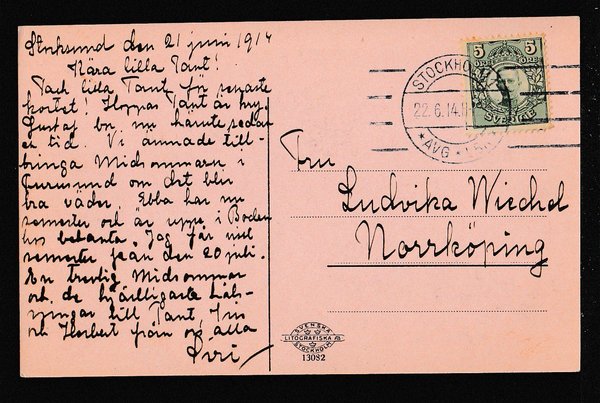 Stocksund den 21 juni 1914
Kära lilla Tant!
Tack lilla Tant för senaste
kortet! Hoppas Tant är kry,
Gustaf bor nu härute sedan
en tid. Vi ämnade till-
bringa Midsommaren i
Furusund om det blir
bra väder. Ebba har nu
semester och är uppe i Boden
hos bekanta. Jag får min
semester från den 20 juli.
En trevlig Midsommar
och de hjärtligaste häls-
ningar till Tant,
och Herbert från oss alla
Siri
Fru
Ludvika Wiechel
Norrköping
5 5
ÖRE ÖRE
SVERIGE
STOCKHOLM
22.6.14.11
*AVG *
SVENSKA
LITOGRAFISKA A/B
STOCKHOLM
13082